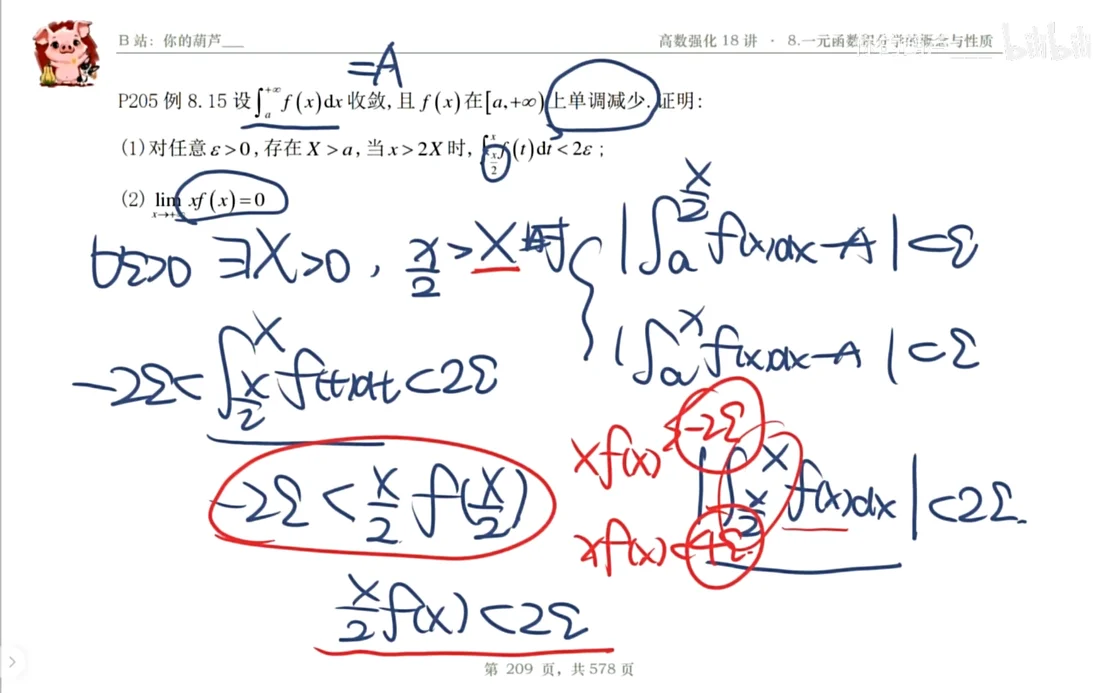 B 站：你的葫芦___
高数强化 18 讲 · 8.一元函数积分学的概念与性质
bilibili
=A
P205 例 8.15 设∫_a^{+∞} f(x)dx 收敛, 且 f(x) 在[a,+∞) 上单调减少. 证明:
(1) 对任意 ε>0, 存在 X>a, 当 x>2X 时, ∫_{x/2}^x f(t)dt<2ε ;
(2) lim_{x→+∞} xf(x)=0
∀ε>0 ∃X>0, x/2 > X 时 { |∫_a^{x/2} f(x)dx-A|<ε
|∫_a^x f(x)dx-A|<ε
-2ε< ∫_{x/2}^x f(t)dt <2ε
-2ε < x/2 f(x/2)
xf(x) > -2ε
|∫_{x/2}^x f(x)dx|<2ε.
xf(x) <4ε.
x/2 f(x) <2ε
第 209 页，共 578 页